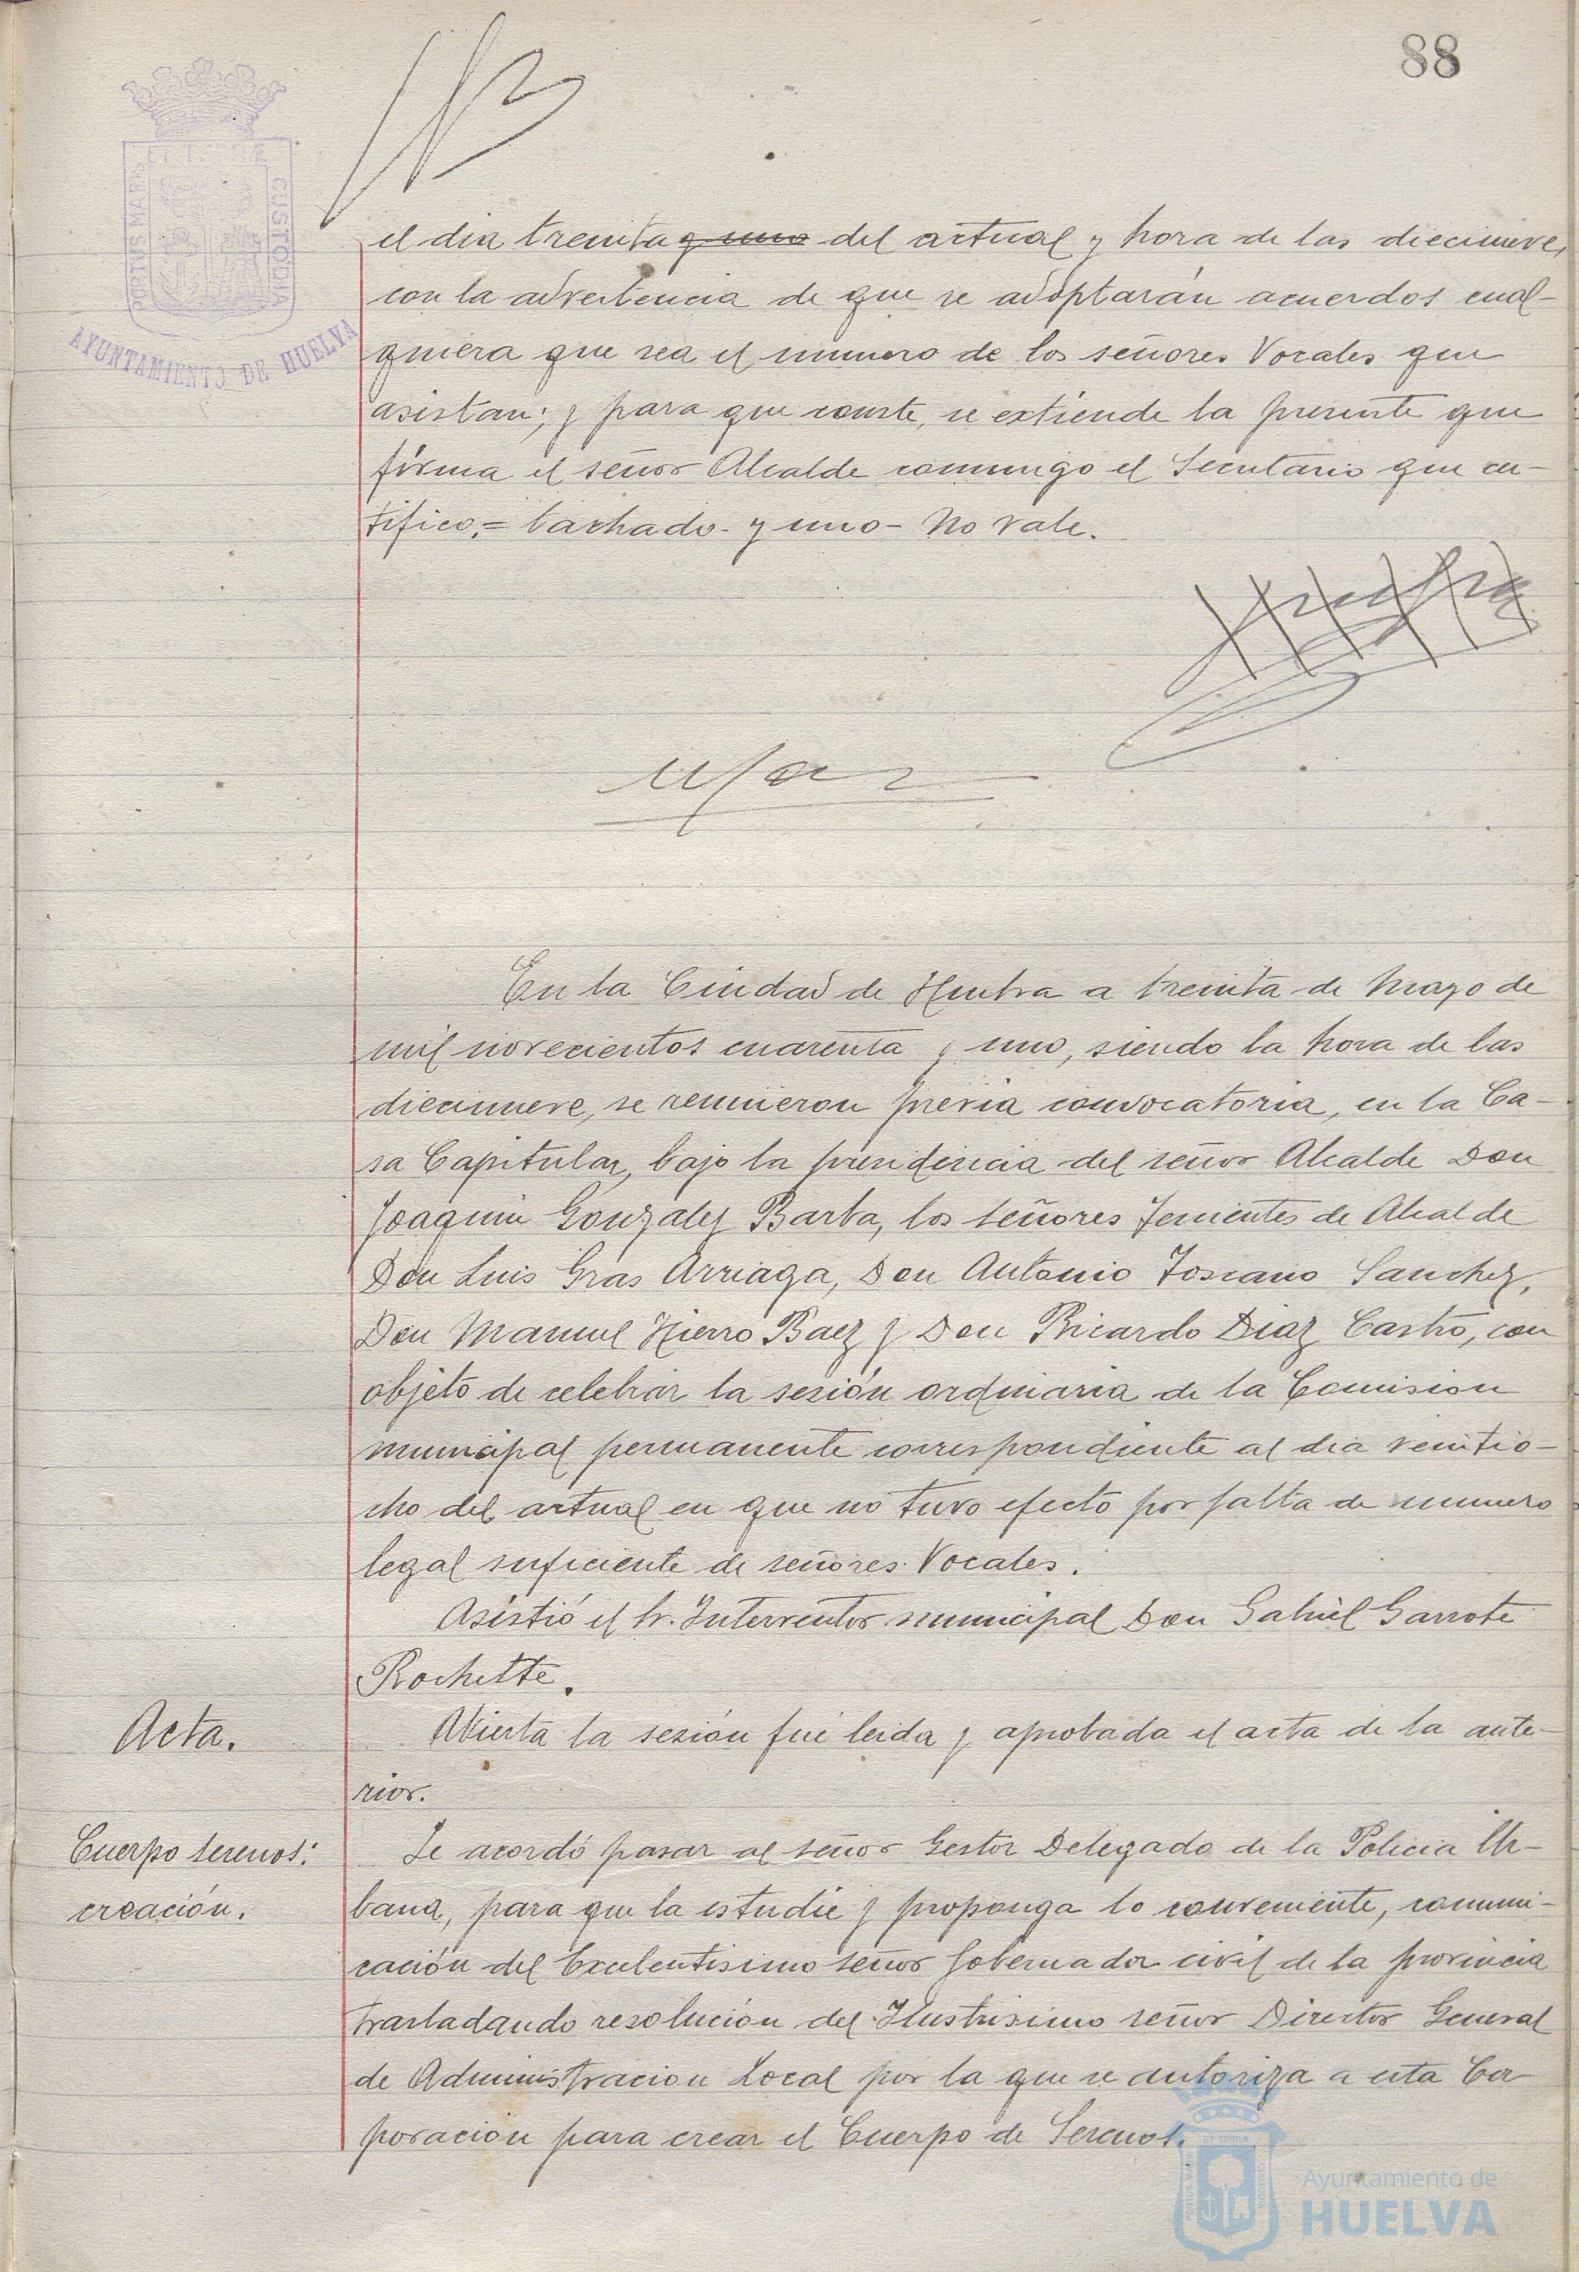 88
PORTUS MARIS ET TERRÆ CUSTODIA
AYUNTAMIENTO DE HUELVA
el dia treinta y uno del actual y hora de las diecinueve,
con la advertencia de que se adoptarán acuerdos cual-
quiera que sea el numero de los señores Vocales que
asistan; y para que conste, se extiende la presente que
firma el señor Alcalde conmigo el Secretario que cer-
tifico.= tachado- y uno- No vale.
En la Ciudad de Huelva a treinta de Mayo de
mil novecientos cuarenta y uno, siendo la hora de las
diecinueve, se reunieron previa convocatoria, en la Ca-
sa Capitular, bajo la presidencia del señor Alcalde Don
Joaquin Gonzalez Barba, los señores Tenientes de Alcalde
Don Luis Gras Arriaga, Don Antonio Toscano Sanchez,
Don Manuel Hierro Baez y Don Ricardo Diaz Castro, con
objeto de celebrar la sesión ordinaria de la Comision
municipal permanente correspondiente al dia veintio-
cho del actual en que no tuvo efecto por falta de numero
legal suficiente de señores Vocales.
Asistió el Sr. Interventor municipal Don Gabriel Garrote
Rochette.
Acta.
Abierta la sesión fué leida y aprobada el acta de la ante-
rior.
Cuerpo serenos:
creación.
Se acordó pasar al señor Gestor Delegado de la Policia Ur-
bana, para que la estudie y proponga lo conveniente, comuni-
cación del Excelentisimo señor Gobernador civil de la provincia
trasladando resolución del Ilustrisimo señor Director General
de Administracion Local por la que se autoriza a esta Cor
poracion para crear el Cuerpo de Serenos.
Ayuntamiento de
HUELVA